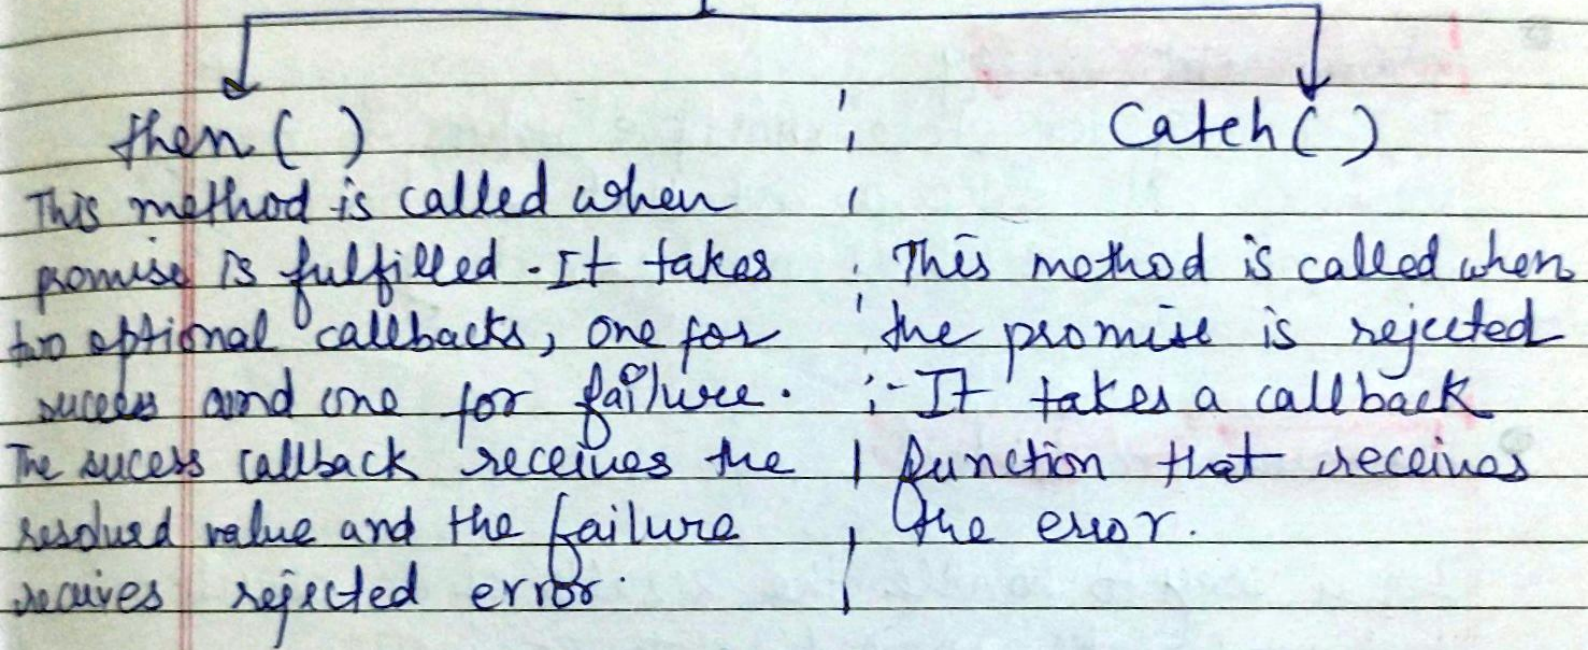 then ( )
This method is called when
promise is fulfilled . It takes
two optional callbacks, one for
success and one for failure.
The sucess callback receives the
resolved value and the failure
recives rejected error.
Catch ( )
This method is called when
the promise is rejected
:- It takes a callback
function that receives
the error.